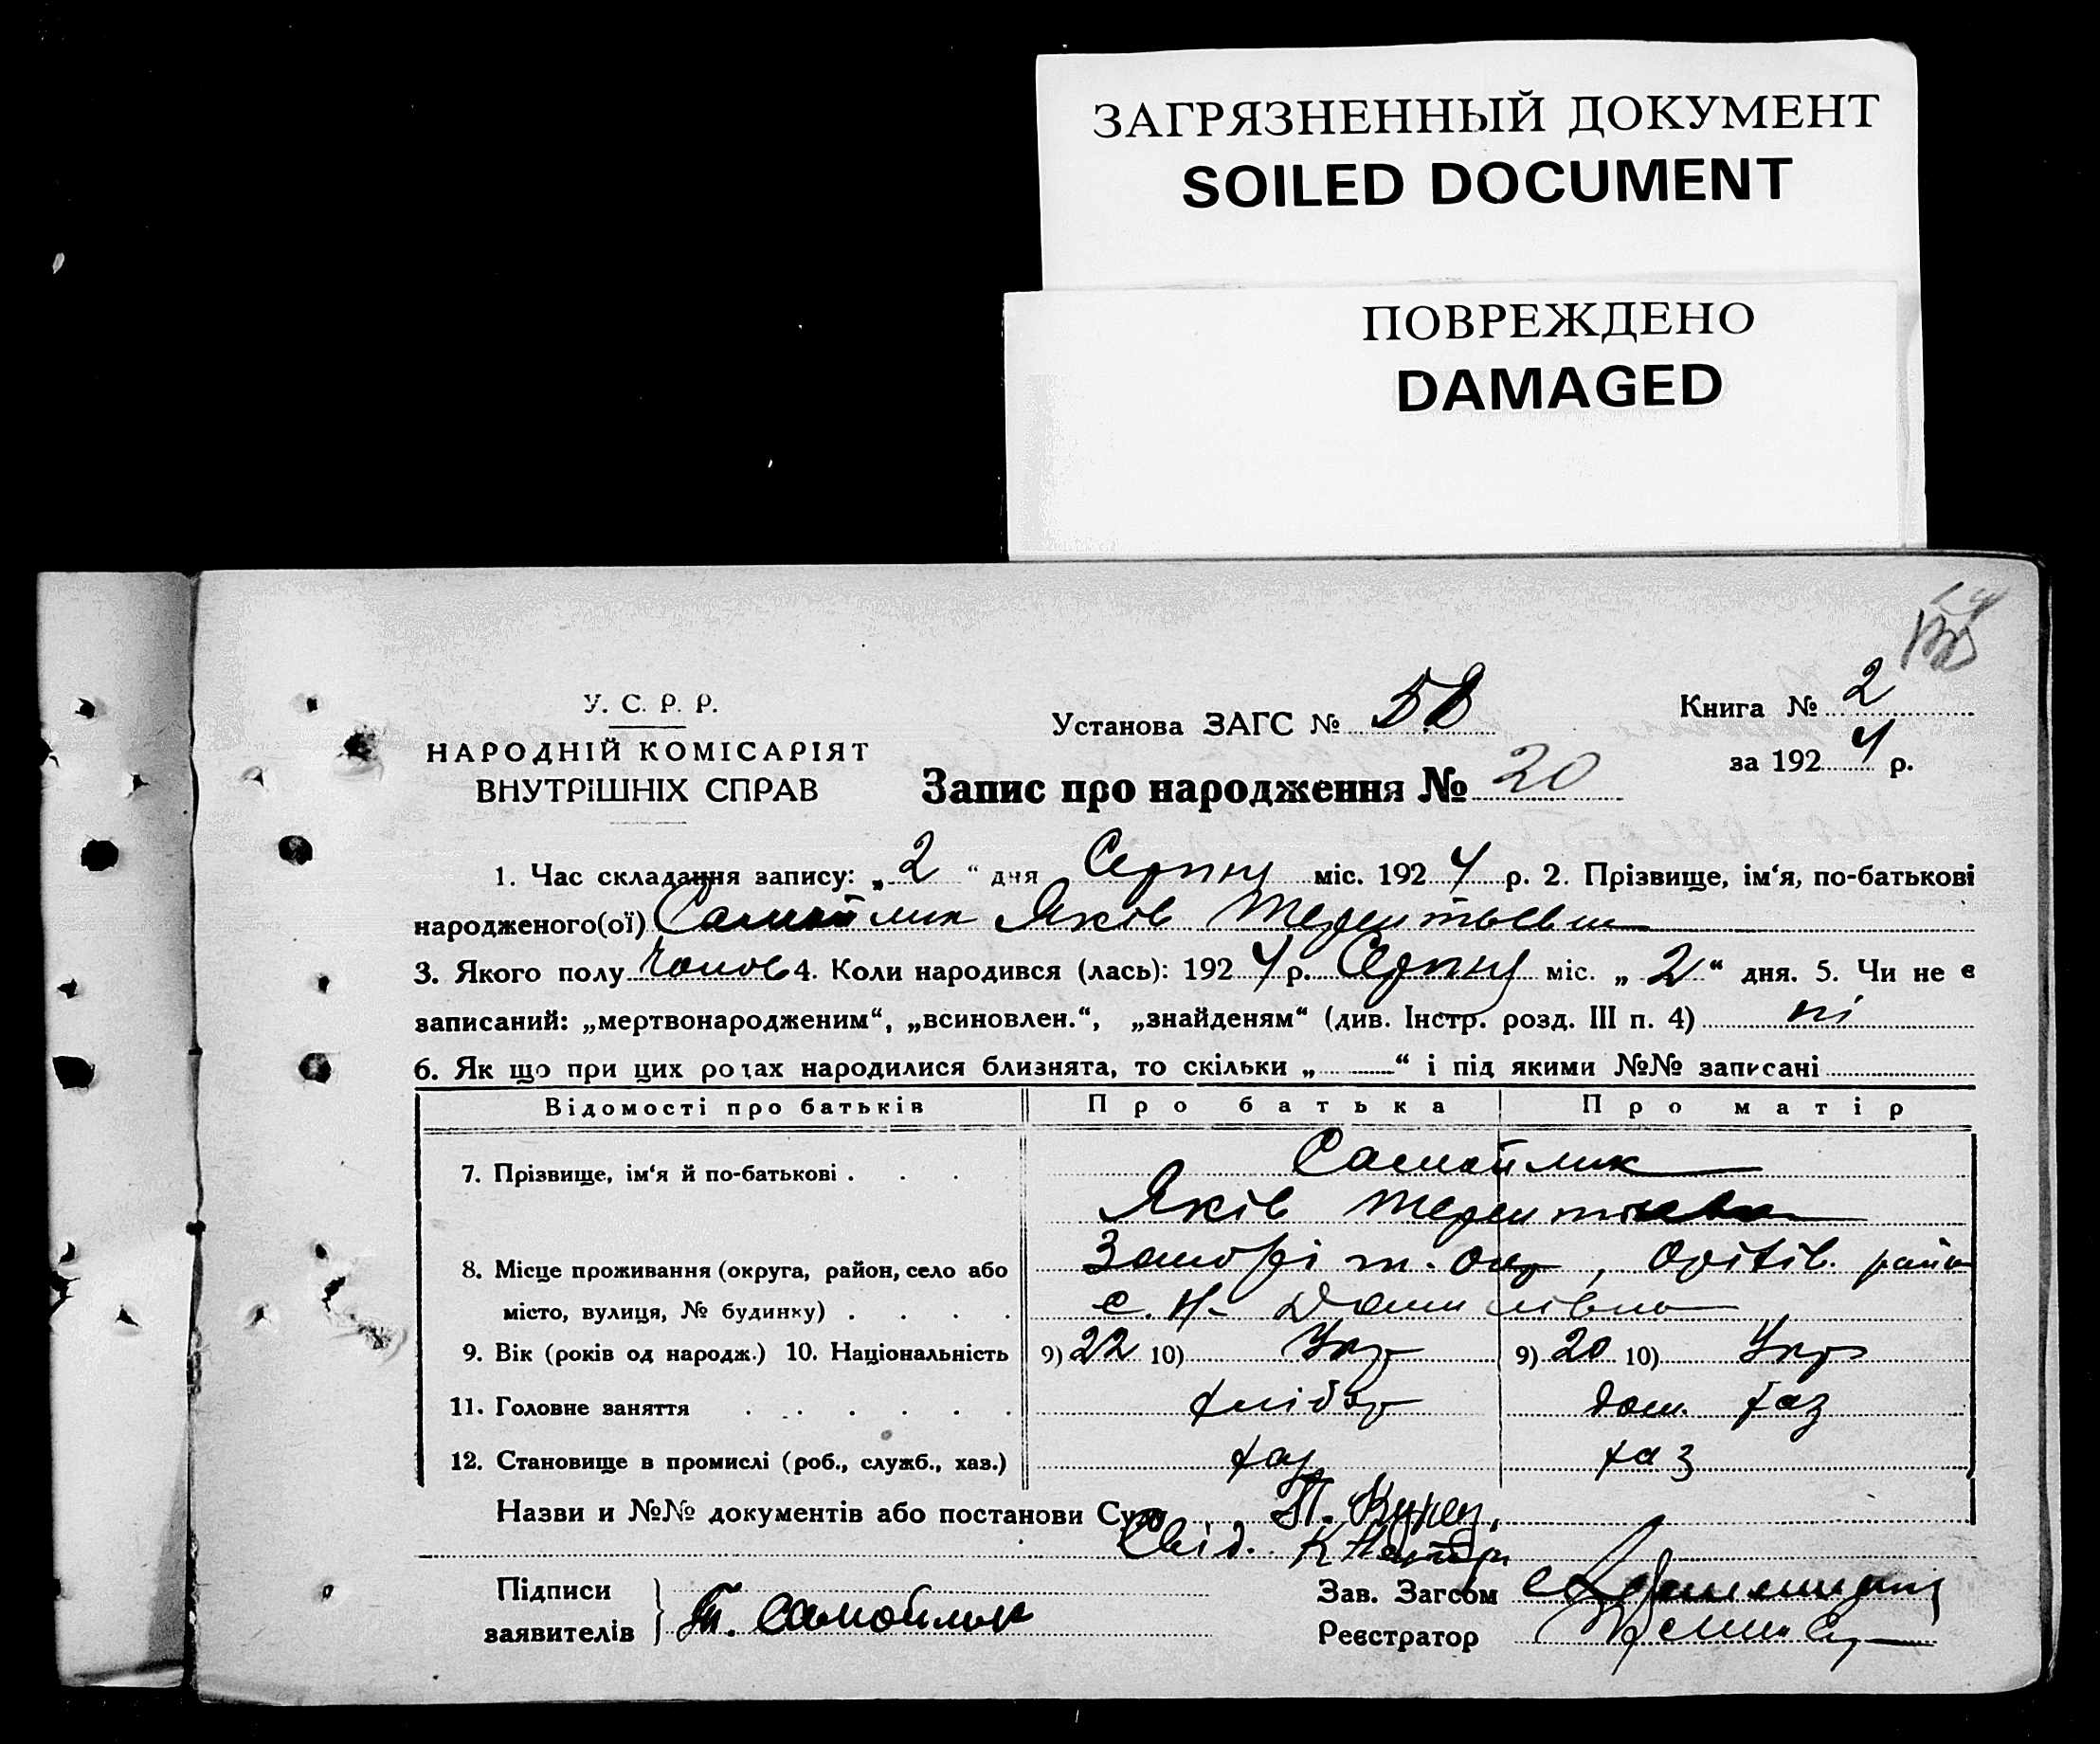 ЗАГРЯЗНЕННЫЙ ДОКУМЕНТ
SOILED DOCUMENT
ПОВРЕЖДЕНО
DAMAGED
У. С. Р. Р.
НАРОДНІЙ КОМІСАРІЯТ
ВНУТРІШНІХ СПРАВ
Установа ЗАГС № 58
Книга № 2
за 1924 р.
Запис про народження № 20
1. Час складання запису: „2“ дня Серпня міс. 1924 р. 2. Прізвище, ім‘я, по-батькові
народженого(ої) Самойлик Яків Терентьевич
3. Якого полу чолов 4. Коли народився (лась): 1924 р. Серпня міс. „2“ дня. 5. Чи не є
записаний: „мертвонародженим“, „всиновлен.“, „знайденям“ (див. Інстр. розд. III п. 4) ні
6. Як що при цих родах народилися близнята, то скільки „ “ і під якими №№ записані
Відомості про батьків Про батька Про матір
7. Прізвище, ім‘я й по-батькові . . . Самойлик
Яків
8. Місце проживання (округа, район, село або
місто, вулиця, № будинку) . . . . с. Н-
9. Вік (років од народж.) 10. Національність 9) 22 10) Укр 9) 20 10) Укр
11. Головне заняття . . . . . . хлібор дом. хаз
12. Становище в промислі (роб., служб., хаз.) хаз хаз
Назви и №№ документів або постанови Суду
Свід.
Підписи
заявителів Т. Самойлик
Зав. Загсом
Реєстратор